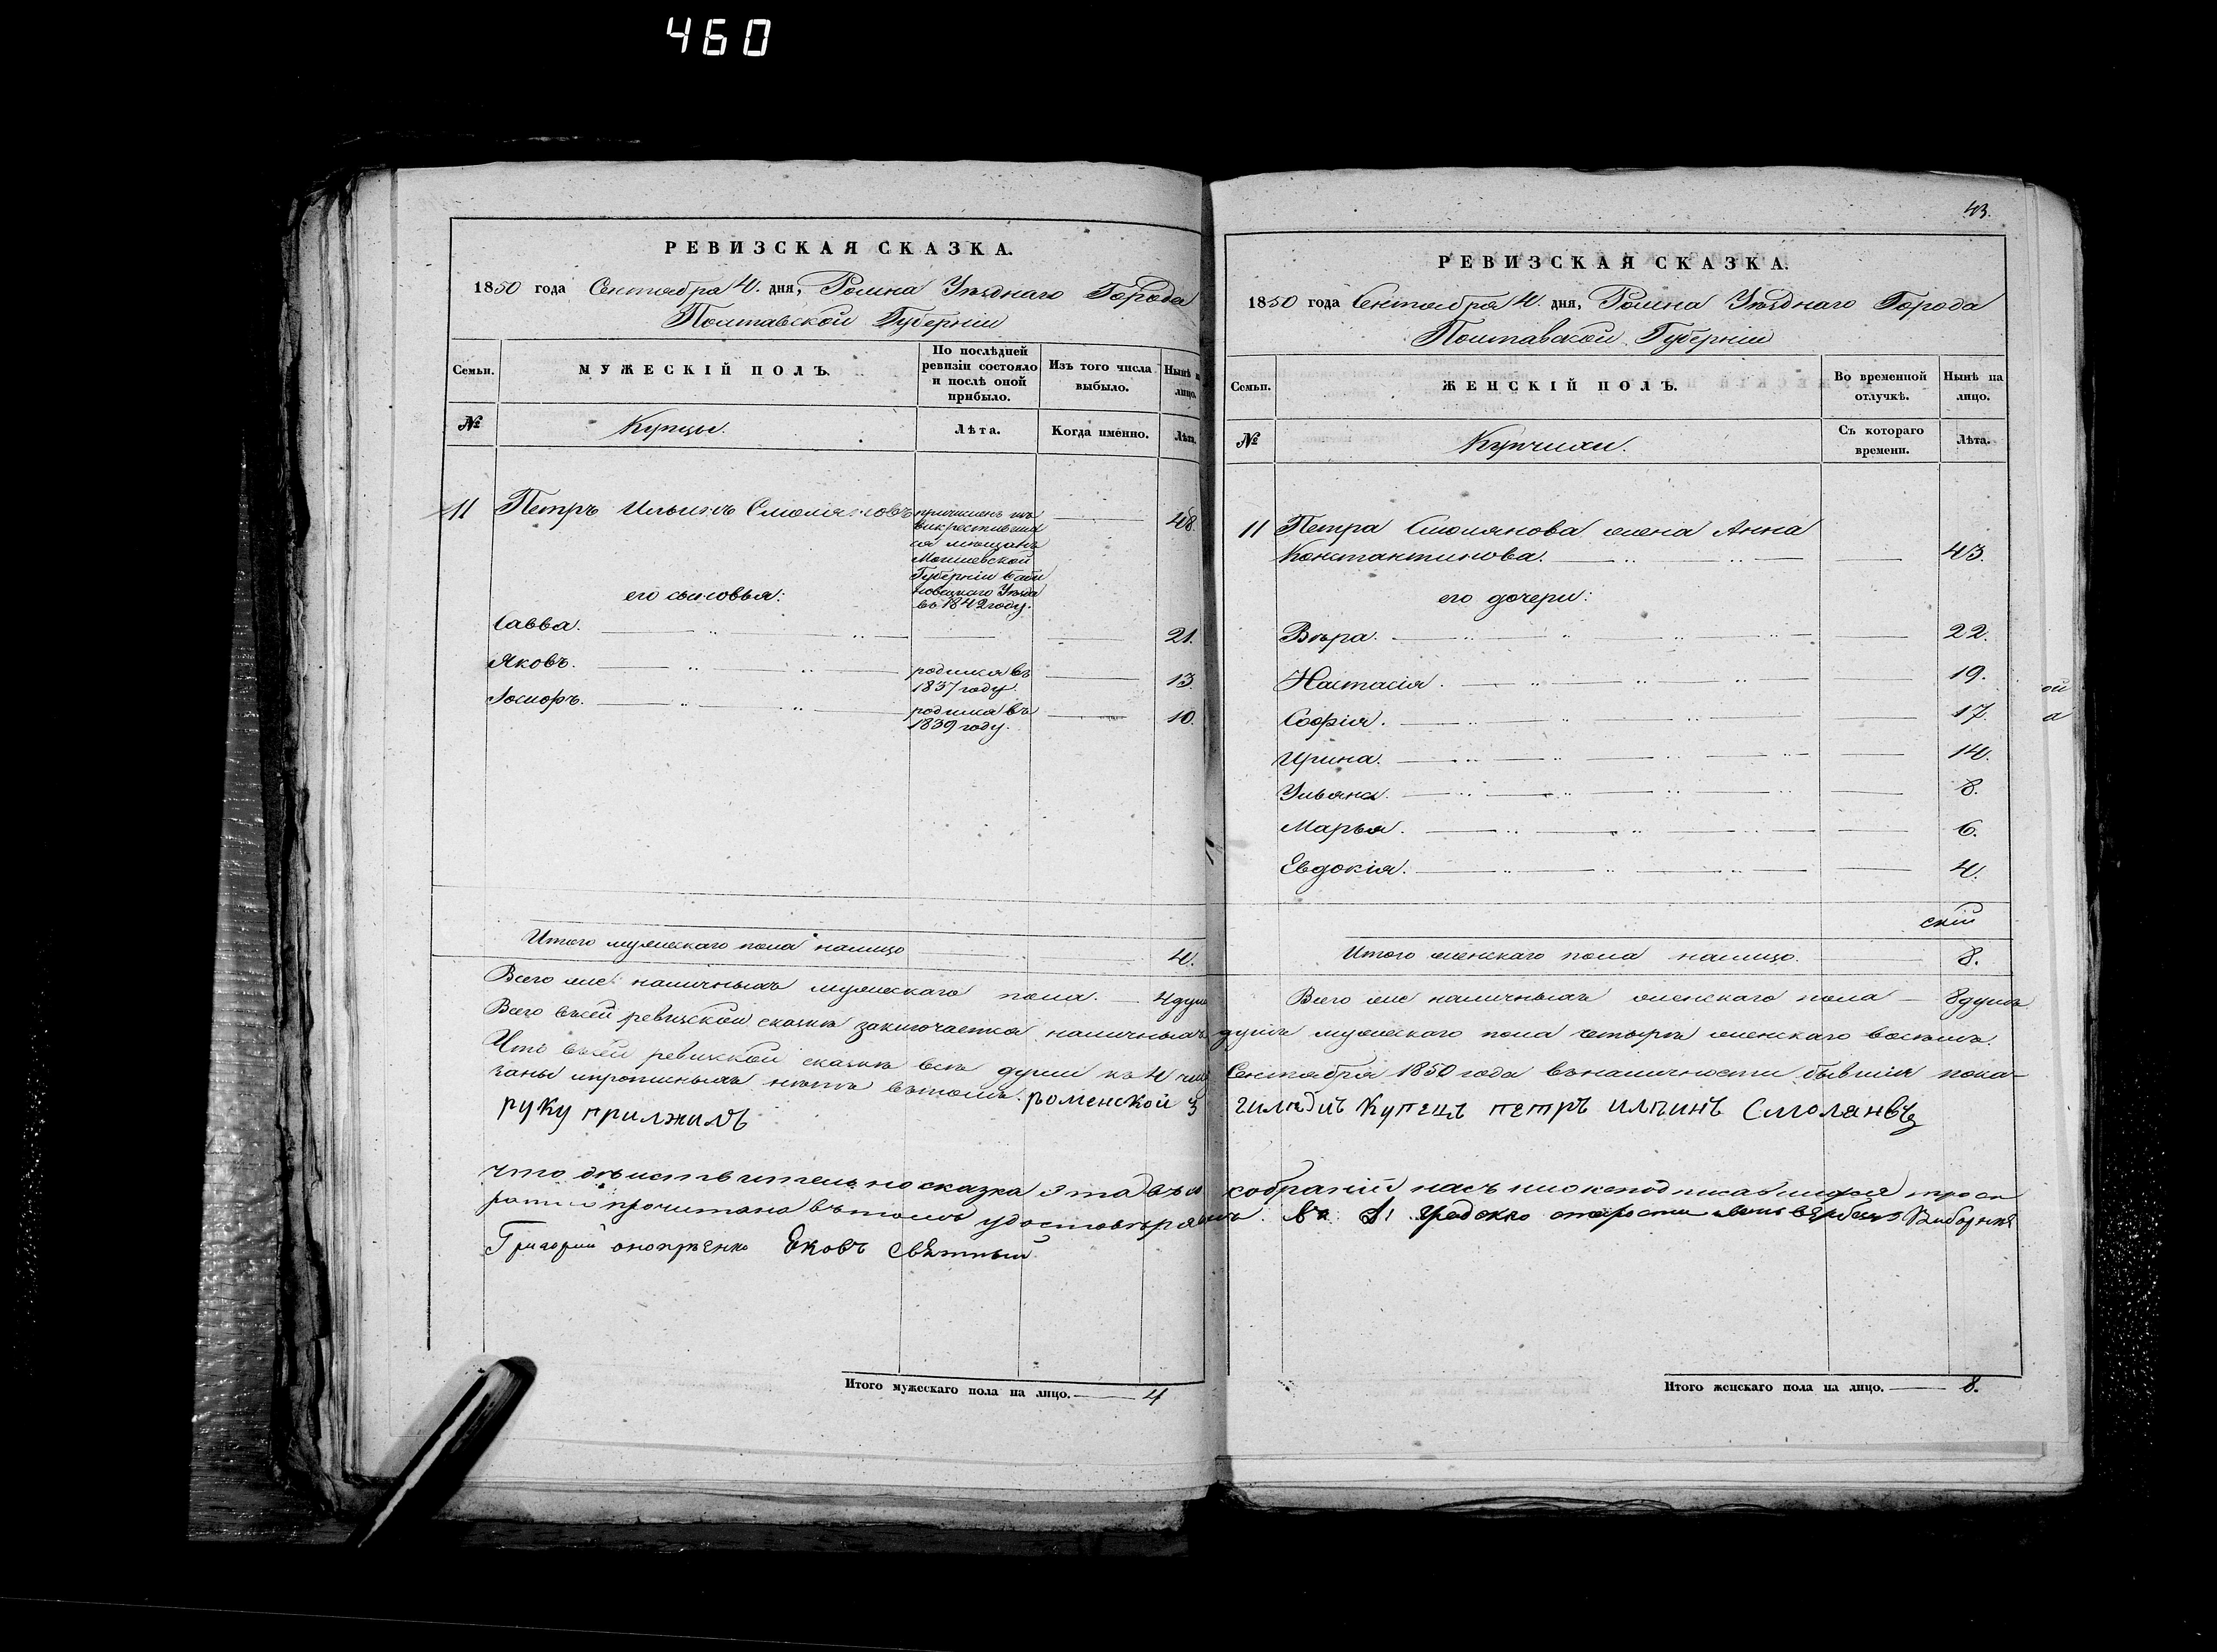 460
РЕВИЗСКАЯ СКАЗКА.
1850 года Сентября 4. дня, Ромна Уѣзднаго Города
Полтавской Губерніи
Семьи.
МУЖЕСКІЙ ПОЛЪ.
По послѣдней ревизіи состояло и послѣ оной прибыло.
Изъ того числа выбыло.
Нынѣ на лицо.
№
Купцы.
Лѣта.
Когда именно.
Лѣта.
11 Петръ Ильинъ Смоляновъ 48.
причисленъ изъ
викрестивших
ся мещанъ
Могилевской
Губерніи Баби
новецкаго Уѣзда
въ 1842 году.
его сыновья:
Савва. 21.
Яковъ. родился въ 1837 году. 13.
родился въ 1839 году. 10.
Итого мужескаго пола налицо 4.
Всего же наличныхъ мужескаго пола. 4 душ
43.
РЕВИЗСКАЯ СКАЗКА.
1850 года Сентября 4. дня, Ромна Уѣзднаго Города
Полтавской Губерніи
Семьи.
ЖЕНСКІЙ ПОЛЪ.
Во временной отлучкѣ.
Нынѣ на лицо.
№
Купчихи.
Съ котораго времени.
Лѣта.
11 Петра Смолянова жена Анна
Константинова. 43.
его дочери:
Вѣра. 22.
Настасія. 19.
Софія. 17.
Ирина. 14.
Ульяна. 8.
Марья. 6.
Евдокія. 4.
скій
Итого женскаго пола налицо. 8.
Всего же наличныхъ женскаго пола 8 душъ
Всего въсей ревизской сказкѣ заключается наличныхъ душъ мужескаго пола четыре женскаго восемь.
Что въсей ревизской сказкѣ всѣ души къ 4 чис Сентября 1850 года въналичности бывшія пока-
заны ипрописныхъ нѣтъ вътомъ. роменской 3 гилдиъ Купецъ петръ илпинъ Смоланвъ
руку прилжилъ
что дѣиствително сказка эта въ собраніи насъ нижеподписавшихся
прочитана вътомъ удостовѣряемъ. Градскаго старости Виборние
Григорий оноприенко Яковъ
Итого мужескаго пола на лицо. 4
Итого женскаго пола на лицо. 8.
ой
а